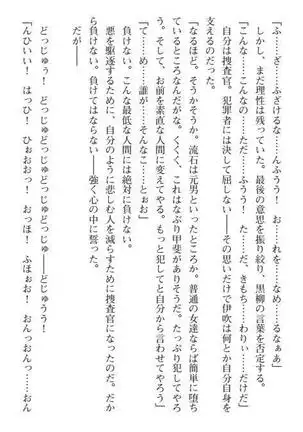 「ふ……ざ……ふざけるな……んふうう！　お……れを……な……めるなぁあ」
　しかし、まだ理性は残っていた。最後の意思を振り絞り、黒柳の言葉を否定する。
「こんな……こんなの……ただ……ふうう！　た……だ、きもち……わりぃ……だけだ」
　自分は捜査官。犯罪者には決して屈しない――その思いだけで伊吹は何とか自分自身を
支えるのだった。
「なるほど。そうかそうか。流石は元男といったところか。普通の女達ならば簡単に堕ち
ているところなんだがな。くくく、これはなぶり甲斐がありそうだ。たっぷり犯してやろ
う。そして、お前を素直な人間に変えてやる。もっと犯してと自分から言わせてやろう」
「て……め……誰が……そんなこ……とぉお」
　負けない。こんな最低な人間には絶対に負けない。
　悪を駆逐するために、自分のように悲しむ人を減らすために捜査官になったのだ。だか
ら負けない。負けてはならない――強く心の中に誓った。
　だが――
　どっじゅう！　どじゅっどじゅっどじゅっ――どじゅうう！
「んひいい！　はっひ！　ひぉおおっ！　おっほ！　ふほぉお！　おんっおんっ……おん